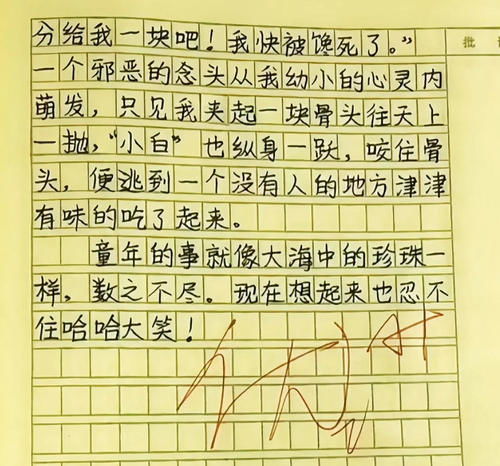 分给我一块吧！我快被馋死了。”
一个邪恶的念头从我幼小的心灵内
萌发，只见我夹起一块骨头往天上
一抛，“小白”也纵身一跃，咬住骨
头，便逃到一个没有人的地方津津
有味的吃了起来。
童年的事就像大海中的珍珠一
样，数之不尽。现在想起来也忍不
住哈哈大笑！
批